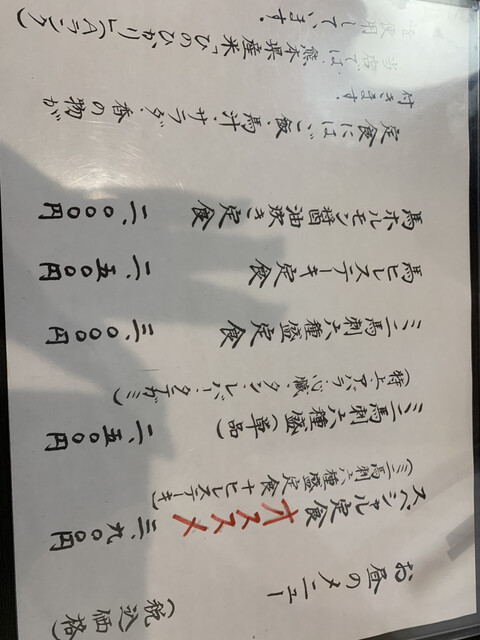 お昼のメニュー (税込価格)
スペシャル定食 オススメ 三、九〇〇円
(ミニ馬刺六種盛定食+ヒレステーキ)
ミニ馬刺六種盛(単品) 二、五〇〇円
(特上・アバラ・心臓・タン・レバー・タテガミ)
ミニ馬刺六種盛定食 三、〇〇〇円
馬ヒレステーキ定食 二、五〇〇円
馬ホルモン醤油炊き定食 二、〇〇〇円
定食には、ご飯・馬汁・サラダ・香の物が
付きます。
当店では、熊本県産米「ひのひかり」(Aランク)
を使用しています。